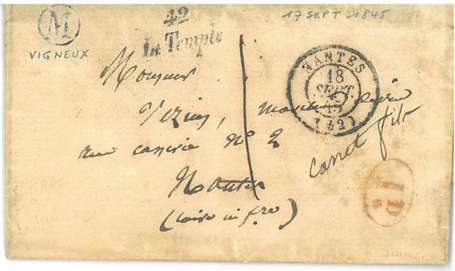 M
VIGNEUX
42
Le Temple
17 SEPT 1845
NANTES
18
SEPT.
45
(42)
Monsieur
Vezin,
rue casserie n° 2
Nantes
(Loire infre)
Canet fils
1D